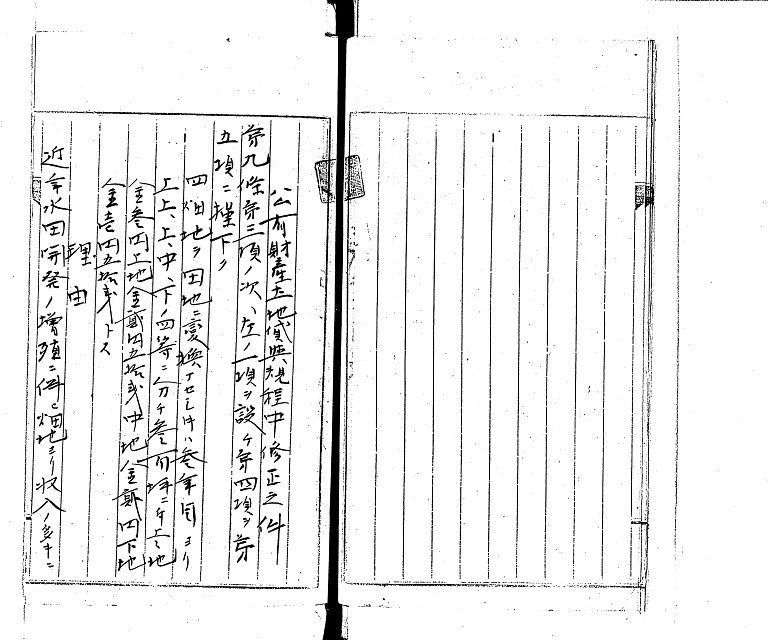 公有財產土地貸與規程中修正之件
第九條第三項ノ次ヘ左ノ一項ヲ設ケ第四項ヲ第
五項ニ繰下ク
四畑地ヲ田地ニ変換ナセシ時ハ參年目ヨリ
上上、上、中、下ノ四等ニ分チ參百坪ニ付上々地
金參円上地金貳円五拾戔中地ノ金貳円下地
金壱円五拾戔トス
理由
近年水田開発ノ増殖ニ伴ヒ畑地ヨリ収入ノ多キニ